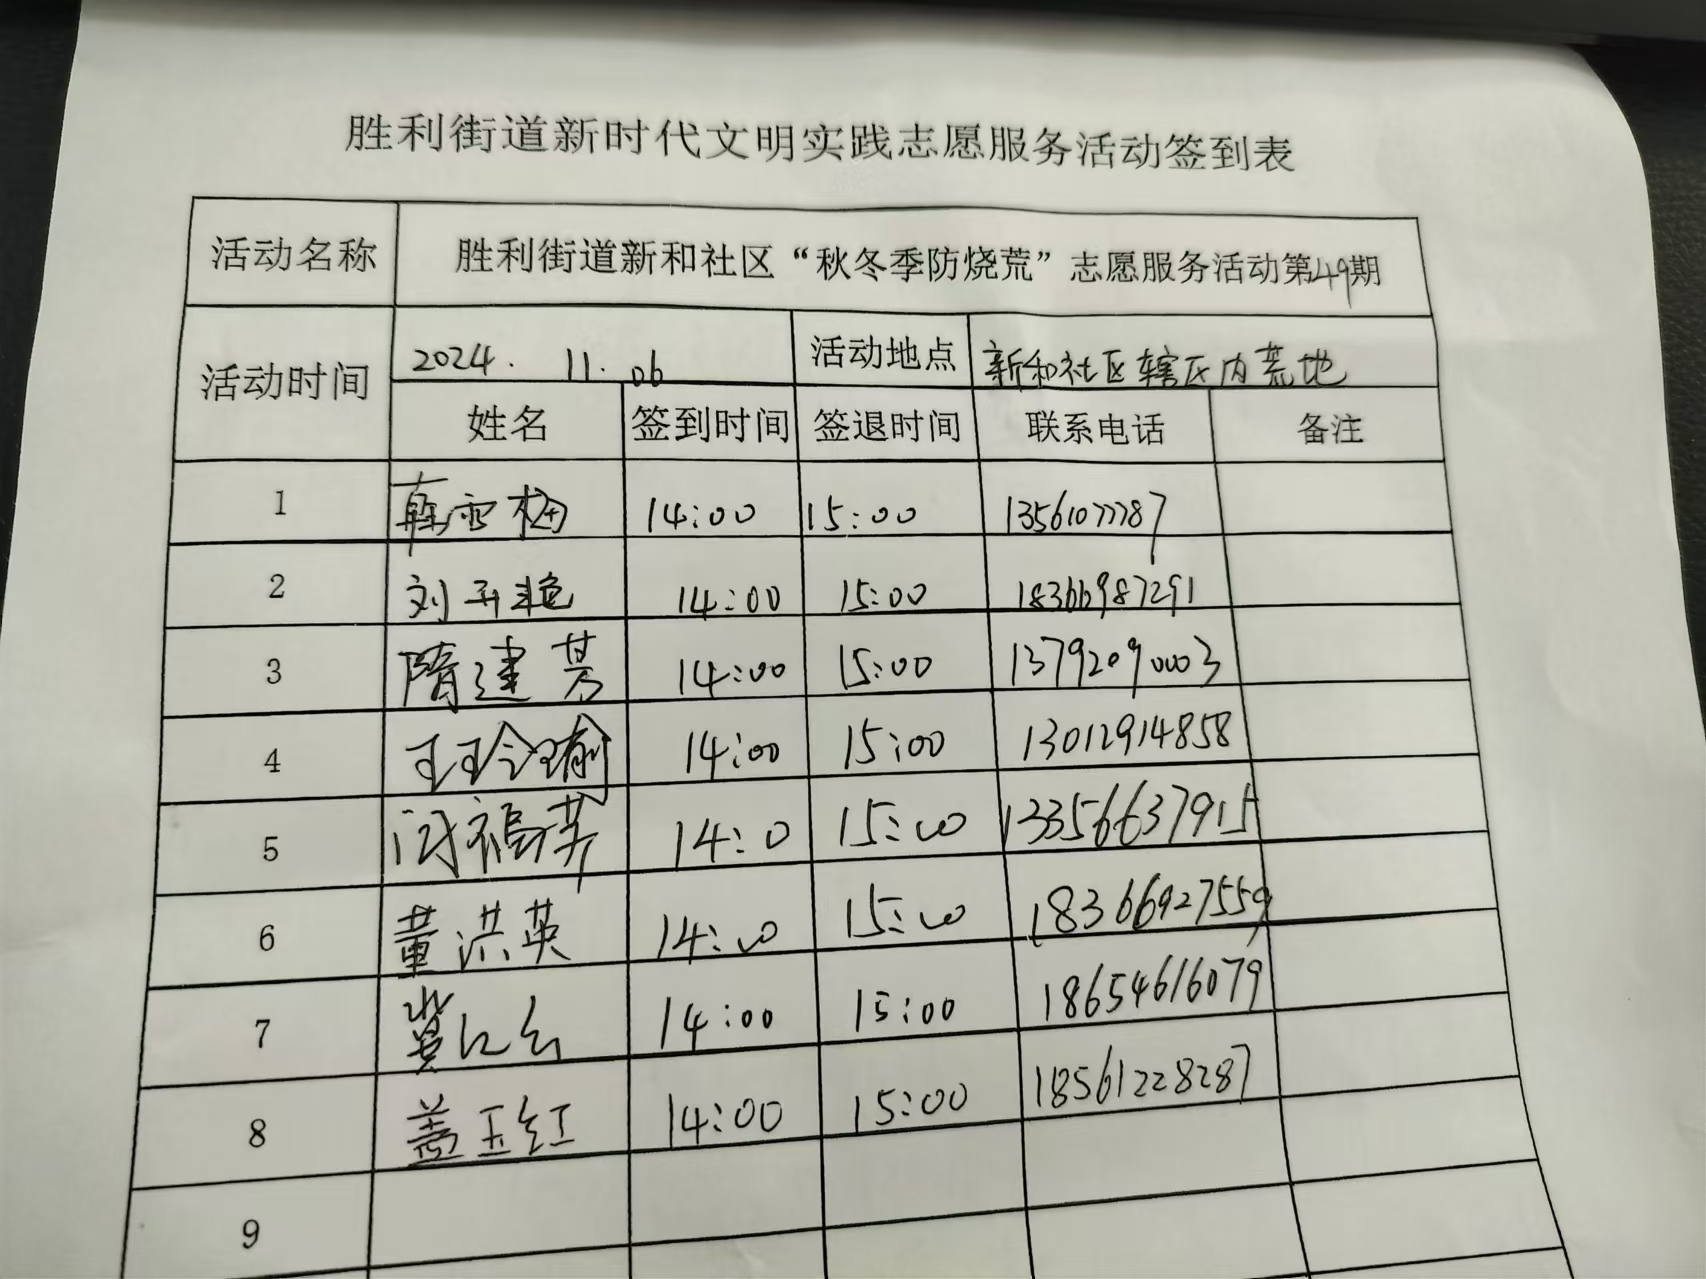 胜利街道新时代文明实践志愿服务活动签到表
活动名称 胜利街道新和社区“秋冬季防烧荒”志愿服务活动第49期
活动时间 2024.11.06 活动地点 新和社区辖区内荒地
姓名 签到时间 签退时间 联系电话 备注
1 薛雪梅 14:00 15:00 13561077787
2 刘开艳 14:00 15:00 18366987291
3 隋建芳 14:00 15:00 13792090003
4 王玲瑜 14:00 15:00 13012914858
5 闵福英 14:0 15:00 13356637915
6 董洪英 14:00 15:00 18366927559
7 冀红云 14:00 15:00 18654616079
8 盖玉红 14:00 15:00 18561228287
9